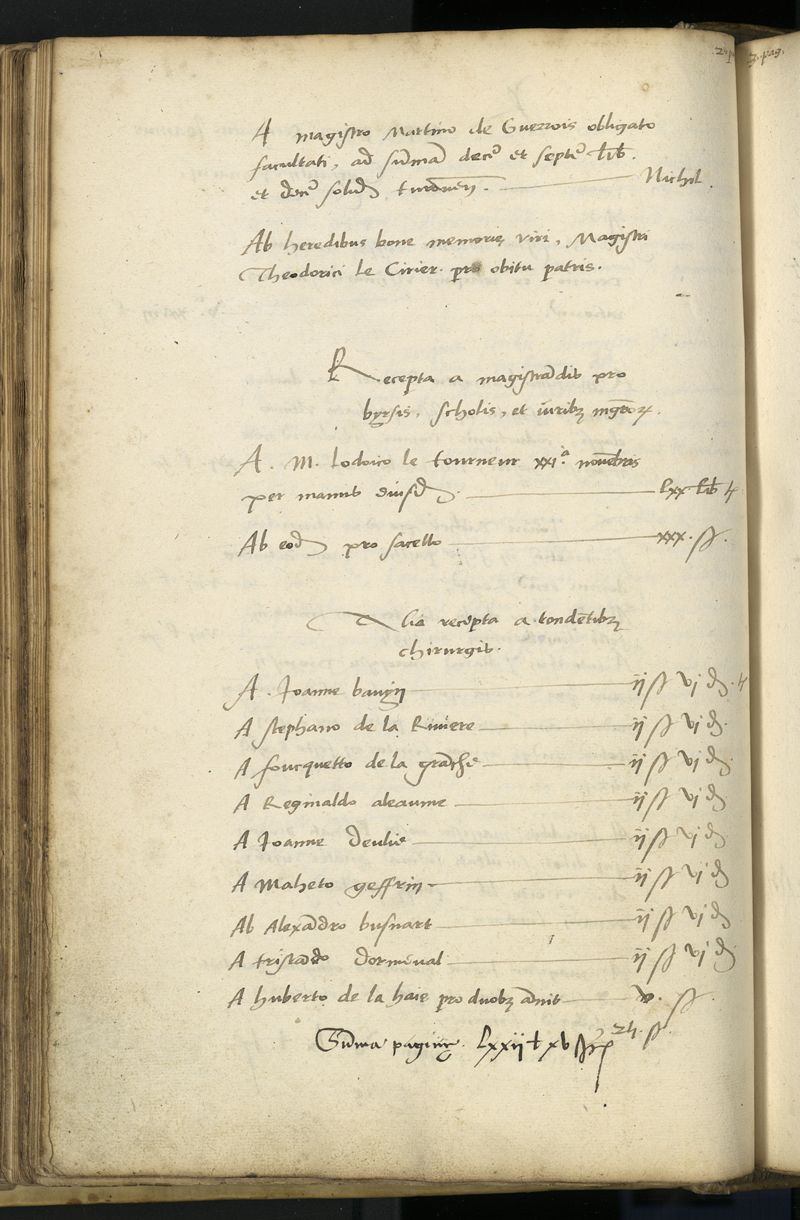 2. p
3. pag.
A magistro Martino de Guerrois obligato
facultati, ad su̅ma̅ dece̅ et septe̅ lib̅.
et dece̅ solid turonen̅. Nichil.
Ab heredibus bone memorię viri, Magistri
Theodorici le Cirier. pro obitu patris.
Recepta a magistra̅dis pro
byrsis, scholis, et iuribꝫ mgro̅ꝝ.
A. M. Lodoico le tourneur xxiᵃ. noue̅bris
per manus eiusd lxx lib̅
Ab eod pro sacello xxx. ß.
Alia recepta a tonde̅tibꝫ
chirurgis.
A. Joanne ij ß vj d.
A stephano de la Riuiere ij ß vj d.
A foucquetto de la gra̅che ij ß vj d.
A Reginaldo aleaume ij ß vj d
A Joanne Deulis ij ß vj d
A Maheto geffrin ij ß vj d
Ab Alexa̅dro busnart ij ß vj d
A trista̅do dormeual ij ß vj d
A huberto de la haie pro duobꝫ a̅nis v. ß.
Su̅ma paginę. lxxij ł xv ß